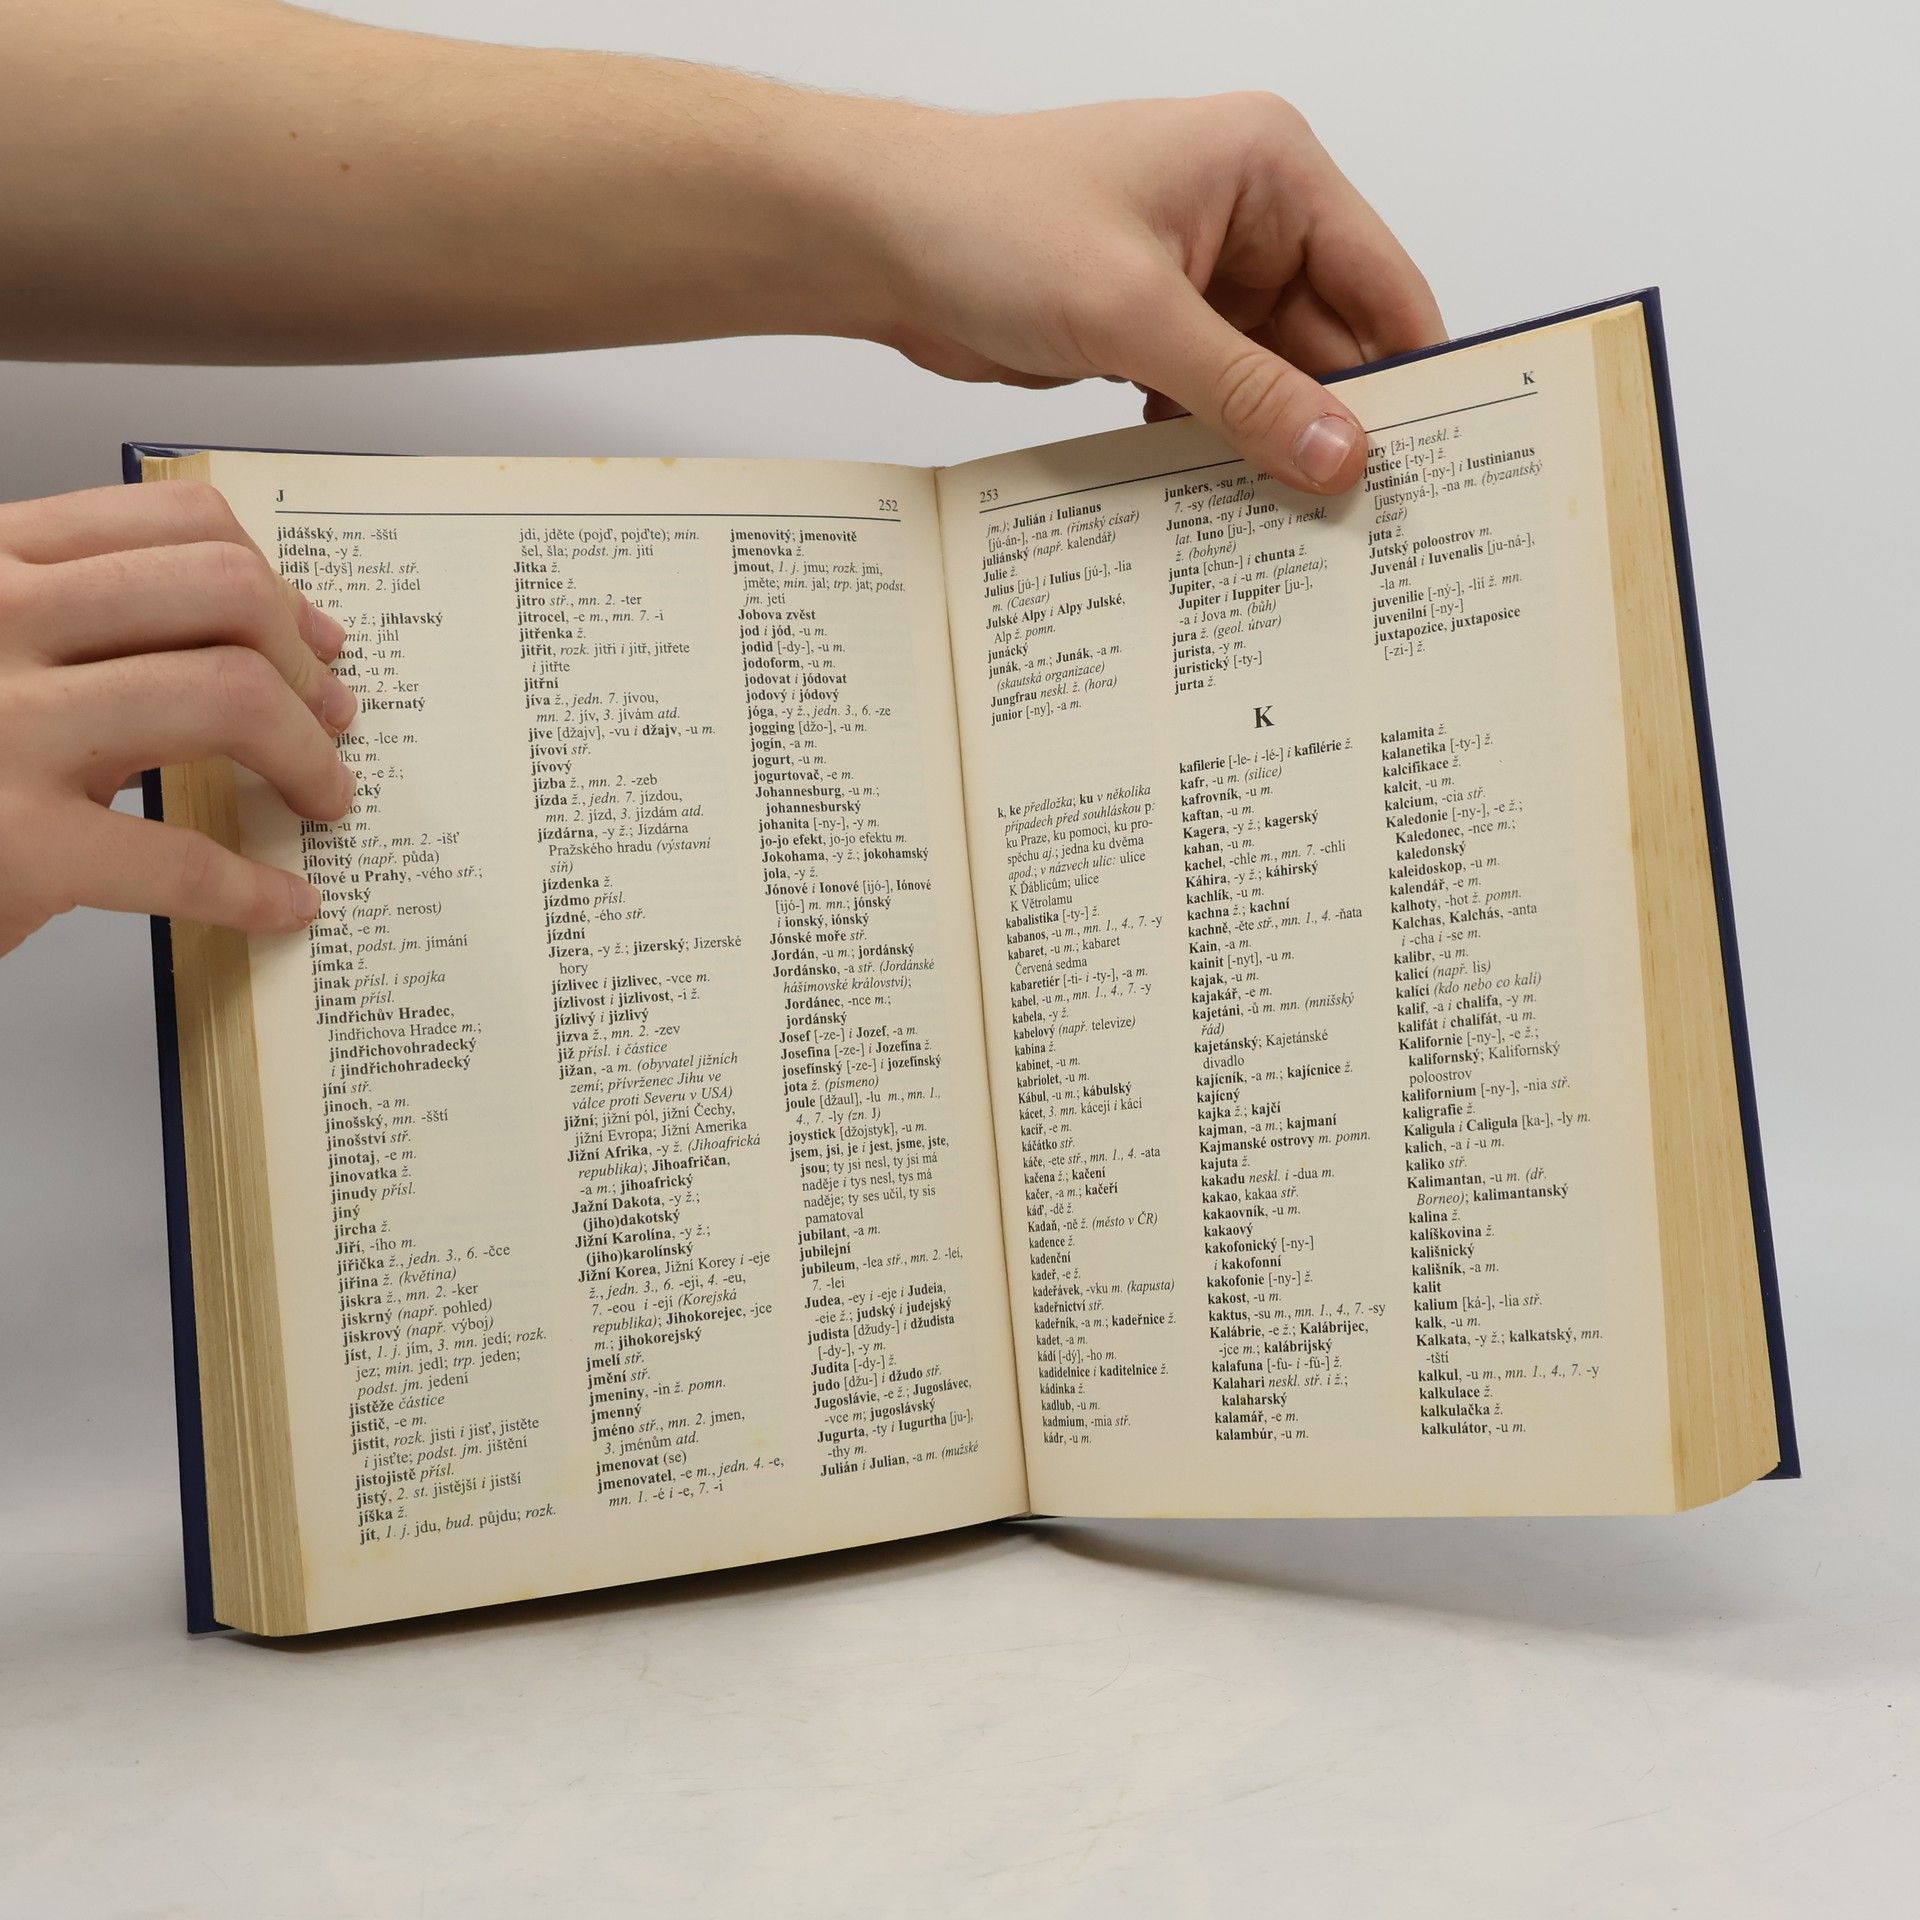 J
252
jidášský, mn. -šští
jídelna, -y ž.
jidiš [-dyš] neskl. stř.
stř., mn. 2. jídel
-u m.
-y ž.; jihlavský
min. jihl
-u m.
-u m.
mn. 2. -ker
jikernatý
jílec, -lce m.
m.
-e ž.;
m.
jilm, -u m.
jíloviště stř., mn. 2. -išť
jílovitý (např. půda)
Jílové u Prahy, -vého stř.;
jílovský
jílový (např. nerost)
jímač, -e m.
jímat, podst. jm. jímání
jímka ž.
jinak přísl. i spojka
jinam přísl.
Jindřichův Hradec,
Jindřichova Hradce m.;
jindřichovohradecký
i jindřichohradecký
jíní stř.
jinoch, -a m.
jinošský, mn. -šští
jinošství stř.
jinotaj, -e m.
jinovatka ž.
jinudy přísl.
jiný
jircha ž.
Jiří, -ího m.
jiřička ž., jedn. 3., 6. -čce
jiřina ž. (květina)
jiskra ž., mn. 2. -ker
jiskrný (např. pohled)
jiskrový (např. výboj)
jíst, 1. j. jím, 3. mn. jedí; rozk.
jez; min. jedl; trp. jeden;
podst. jm. jedení
jistěže částice
jistič, -e m.
jistit, rozk. jisti i jisť, jistěte
i jisťte; podst. jm. jištění
jistojistě přísl.
jistý, 2. st. jistější i jistší
jíška ž.
jít, 1. j. jdu, bud. půjdu; rozk.
jdi, jděte (pojď, pojďte); min.
šel, šla; podst. jm. jití
Jitka ž.
jitrnice ž.
jitro stř., mn. 2. -ter
jitrocel, -e m., mn. 7. -i
jitřenka ž.
jitřit, rozk. jitři i jitř, jitřete
i jitřte
jitřní
jíva ž., jedn. 7. jívou,
mn. 2. jív, 3. jívám atd.
jive [džajv], -vu i džajv, -u m.
jívoví stř.
jívový
jizba ž., mn. 2. -zeb
jízda ž., jedn. 7. jízdou,
mn. 2. jízd, 3. jízdám atd.
jízdárna, -y ž.; Jízdárna
Pražského hradu (výstavní
síň)
jízdenka ž.
jízdmo přísl.
jízdné, -ého stř.
jízdní
Jizera, -y ž.; jizerský; Jizerské
hory
jízlivec i jizlivec, -vce m.
jízlivost i jizlivost, -i ž.
jízlivý i jizlivý
jizva ž., mn. 2. -zev
již přísl. i částice
jižan, -a m. (obyvatel jižních
zemí; přívrženec Jihu ve
válce proti Severu v USA)
jižní; jižní pól, jižní Čechy,
jižní Evropa; Jižní Amerika
Jižní Afrika, -y ž. (Jihoafrická
republika); Jihoafričan,
-a m.; jihoafrický
Jažní Dakota, -y ž.;
(jiho)dakotský
Jižní Karolína, -y ž.;
(jiho)karolínský
Jižní Korea, Jižní Korey i -eje
ž., jedn. 3., 6. -eji, 4. -eu,
7. -eou i -ejí (Korejská
republika); Jihokorejec, -jce
m.; jihokorejský
jmelí stř.
jmění stř.
jmeniny, -in ž. pomn.
jmenný
jméno stř., mn. 2. jmen,
3. jménům atd.
jmenovat (se)
jmenovatel, -e m., jedn. 4. -e,
mn. 1. -é i -e, 7. -i
jmenovitý; jmenovitě
jmenovka ž.
jmout, 1. j. jmu; rozk. jmi,
jměte; min. jal; trp. jat; podst.
jm. jetí
Jobova zvěst
jod i jód, -u m.
jodid [-dy-], -u m.
jodoform, -u m.
jodovat i jódovat
jodový i jódový
jóga, -y ž., jedn. 3., 6. -ze
jogging [džo-], -u m.
jogín, -a m.
jogurt, -u m.
jogurtovač, -e m.
Johannesburg, -u m.;
johannesburský
johanita [-ny-], -y m.
jo-jo efekt, jo-jo efektu m.
Jokohama, -y ž.; jokohamský
jola, -y ž.
Jónové i Ionové [ijó-], Iónové
[ijó-] m. mn.; jónský
i ionský, iónský
Jónské moře stř.
Jordán, -u m.; jordánský
Jordánsko, -a stř. (Jordánské
hášimovské království);
Jordánec, -nce m.;
jordánský
Josef [-ze-] i Jozef, -a m.
Josefina [-ze-] i Jozefína ž.
josefínský [-ze-] i jozefínský
jota ž. (písmeno)
joule [džaul], -lu m., mn. 1.,
4., 7. -ly (zn. J)
joystick [džojstyk], -u m.
jsem, jsi, je i jest, jsme, jste,
jsou; ty jsi nesl, ty jsi má
naděje i tys nesl, tys má
naděje; ty ses učil, ty sis
pamatoval
jubilant, -a m.
jubilejní
jubileum, -lea stř., mn. 2. -leí,
7. -lei
Judea, -ey i -eje i Judeia,
-eie ž.; judský i judejský
judista [džudy-] i džudista
[-dy-], -y m.
Judita [-dy-] ž.
judo [džu-] i džudo stř.
Jugoslávie, -e ž.; Jugoslávec,
-vce m; jugoslávský
Jugurta, -ty i Iugurtha [ju-],
-thy m.
Julián i Julian, -a m. (mužské
253
K
jm.); Julián i Iulianus
[jú-án-], -na m. (římský císař)
juliánský (např. kalendář)
Julie ž.
Julius [jú-] i Iulius [jú-], -lia
m. (Caesar)
Julské Alpy i Alpy Julské,
Alp ž. pomn.
junácký
junák, -a m.; Junák, -a m.
(skautská organizace)
Jungfrau neskl. ž. (hora)
junior [-ny], -a m.
junkers, -su m., mn.
7. -sy (letadlo)
Junona, -ny i Juno,
lat. Iuno [ju-], -ony i neskl.
ž. (bohyně)
junta [chun-] i chunta ž.
Jupiter, -a i -u m. (planeta);
Jupiter i Iuppiter [ju-],
-a i Jova m. (bůh)
jura ž. (geol. útvar)
jurista, -y m.
juristický [-ty-]
jurta ž.
[ži-] neskl. ž.
justice [-ty-] ž.
Justinián [-ny-] i Iustinianus
[justynyá-], -na m. (byzantský
císař)
juta ž.
Jutský poloostrov m.
Juvenál i Iuvenalis [ju-ná-],
-la m.
juvenilie [-ný-], -lií ž. mn.
juvenilní [-ny-]
juxtapozice, juxtaposice
[-zi-] ž.
K
k, ke předložka; ku v několika
případech před souhláskou p:
ku Praze, ku pomoci, ku pro-
spěchu aj.; jedna ku dvěma
apod.; v názvech ulic: ulice
K Ďáblicům; ulice
K Větrolamu
kabalistika [-ty-] ž.
kabanos, -u m., mn. 1., 4., 7. -y
kabaret, -u m.; kabaret
Červená sedma
kabaretiér [-ti- i -ty-], -a m.
kabel, -u m., mn. 1., 4., 7. -y
kabela, -y ž.
kabelový (např. televize)
kabina ž.
kabinet, -u m.
kabriolet, -u m.
Kábul, -u m.; kábulský
kácet, 3. mn. kácejí i kácí
kacíř, -e m.
káčátko stř.
káče, -ete stř., mn. 1., 4. -ata
kačena ž.; kačení
kačer, -a m.; kačeří
káď, -dě ž.
Kadaň, -ně ž. (město v ČR)
kadence ž.
kadenční
kadeř, -e ž.
kadeřávek, -vku m. (kapusta)
kadeřnictví stř.
kadeřník, -a m.; kadeřnice ž.
kadet, -a m.
kádí [-dý], -ho m.
kadidelnice i kaditelnice ž.
kádinka ž.
kadlub, -u m.
kadmium, -mia stř.
kádr, -u m.
kafilerie [-le- i -lé-] i kafilérie ž.
kafr, -u m. (silice)
kafrovník, -u m.
kaftan, -u m.
Kagera, -y ž.; kagerský
kahan, -u m.
kachel, -chle m., mn. 7. -chli
Káhira, -y ž.; káhirský
kachlík, -u m.
kachna ž.; kachní
kachně, -ěte stř., mn. 1., 4. -ňata
Kain, -a m.
kainit [-nyt], -u m.
kajak, -u m.
kajakář, -e m.
kajetáni, -ů m. mn. (mnišský
řád)
kajetánský; Kajetánské
divadlo
kajícník, -a m.; kajícnice ž.
kajícný
kajka ž.; kajčí
kajman, -a m.; kajmaní
Kajmanské ostrovy m. pomn.
kajuta ž.
kakadu neskl. i -dua m.
kakao, kakaa stř.
kakaovník, -u m.
kakaový
kakofonický [-ny-]
i kakofonní
kakofonie [-ny-] ž.
kakost, -u m.
kaktus, -su m., mn. 1., 4., 7. -sy
Kalábrie, -e ž.; Kalábrijec,
-jce m.; kalábrijský
kalafuna [-fu- i -fú-] ž.
Kalahari neskl. stř. i ž.;
kalaharský
kalamář, -e m.
kalambúr, -u m.
kalamita ž.
kalanetika [-ty-] ž.
kalcifikace ž.
kalcit, -u m.
kalcium, -cia stř.
Kaledonie [-ny-], -e ž.;
Kaledonec, -nce m.;
kaledonský
kaleidoskop, -u m.
kalendář, -e m.
kalhoty, -hot ž. pomn.
Kalchas, Kalchás, -anta
i -cha i -se m.
kalibr, -u m.
kalicí (např. lis)
kalící (kdo nebo co kalí)
kalif, -a i chalífa, -y m.
kalifát i chalífát, -u m.
Kalifornie [-ny-], -e ž.;
kalifornský; Kalifornský
poloostrov
kalifornium [-ny-], -nia stř.
kaligrafie ž.
Kaligula i Caligula [ka-], -ly m.
kalich, -a i -u m.
kaliko stř.
Kalimantan, -u m. (dř.
Borneo); kalimantanský
kalina ž.
kališkovina ž.
kališnický
kališník, -a m.
kalit
kalium [ká-], -lia stř.
kalk, -u m.
Kalkata, -y ž.; kalkatský, mn.
-tští
kalkul, -u m., mn. 1., 4., 7. -y
kalkulace ž.
kalkulačka ž.
kalkulátor, -u m.